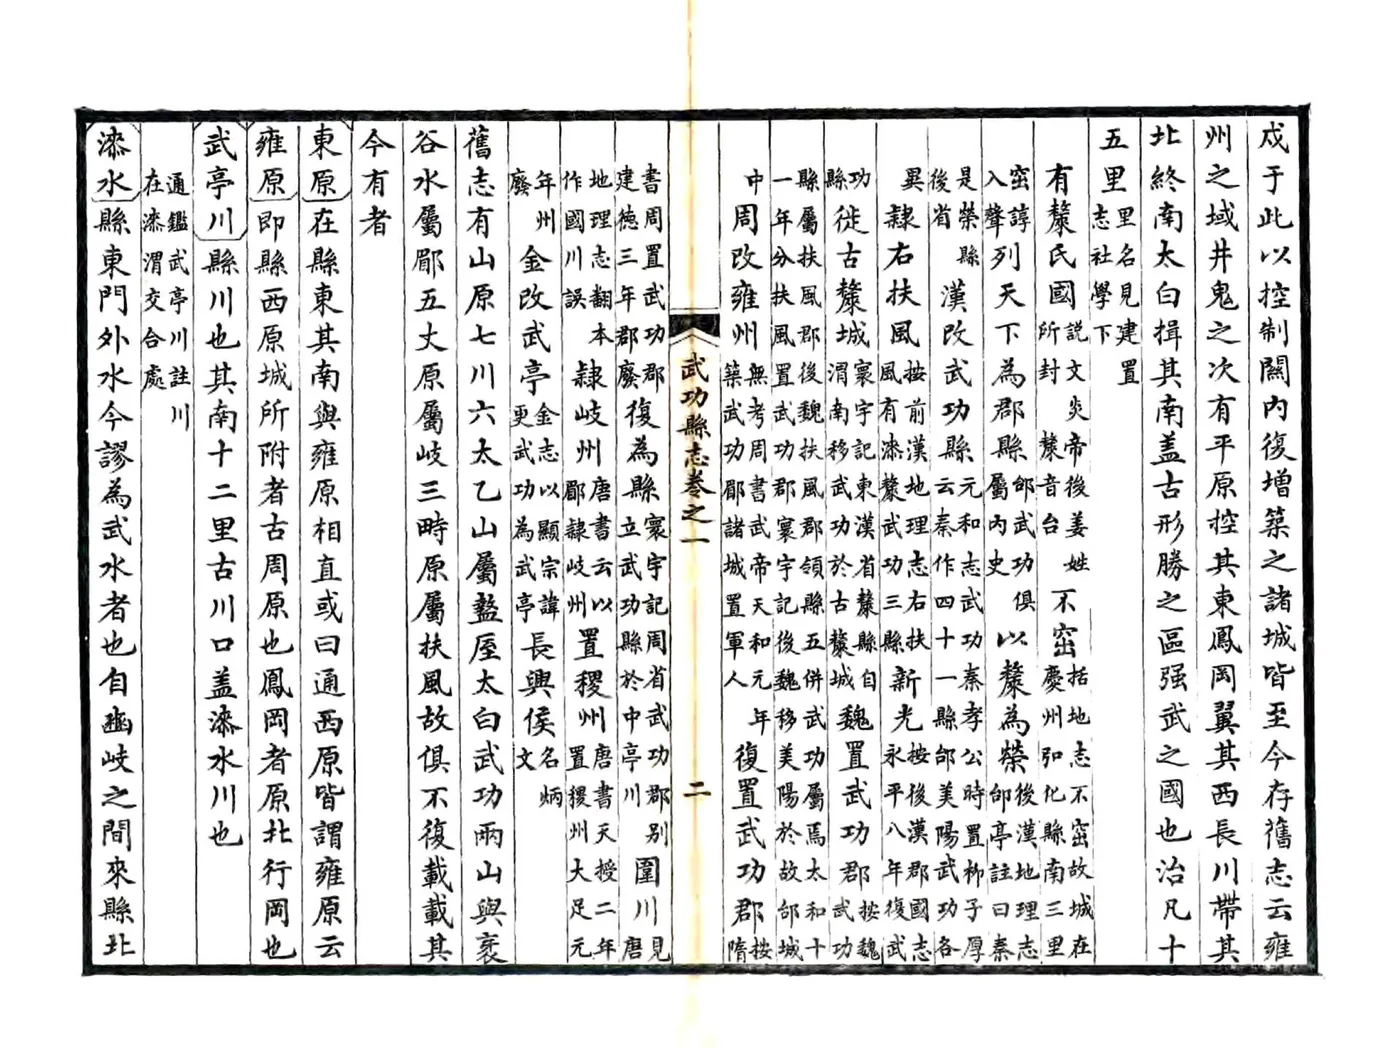 戍于此以控制關内復增築之諸城皆至今存舊志云雍
州之域井鬼之次有平原控其東鳳岡翼其西長川帶其
北終南太白揖其南盖古形勝之區强武之國也治凡十
五里里名見建置志社學下
有斄氏國説文炎帝後姜姓所封斄音台不窋括地志不窋故城在慶州弘化縣南三里
窋諄入聲列天下為郡縣邰武功俱屬内史以斄為榮後漢地理志邰亭註曰秦
是榮縣後省漢改武功縣元和志武功秦孝公時置柳子厚云秦作四十一縣邰美陽武功各
異隸右扶風按前漢地理志右扶風有漆斄武功三縣新光按後漢郡國志永平八年復武
功縣徙古斄城寰宇記東漢省斄縣自渭南移武功於古斄城魏置武功郡按魏武功
縣屬扶風郡後魏扶風郡領縣五併武功屬焉太和十一年分扶風置武功郡寰宇記後魏移美陽於故邰城
中周改雍州無考周書武帝天和元年築武功郿諸城置軍人復置武功郡按隋
武功縣志卷之一 二
書周置武功郡建德三年郡廢復為縣寰宇記周省武功郡别立武功縣於中亭川圍川見唐
地理志翻本作國川誤隸岐州唐書云以郿隸岐州置稷州唐書天授二年置稷州大足元
年州廢金改武亭金志以顯宗諱更武功為武亭長興侯名炳文
舊志有山原七川六太乙山屬盩厔太白武功兩山與裹
谷水屬郿五丈原屬岐三畤原屬扶風故俱不復載載其
今有者
東原在縣東其南與雍原相直或曰通西原皆謂雍原云
雍原即縣西原城所附者古周原也鳳岡者原北行岡也
武亭川縣川也其南十二里古川口盖漆水川也
通鑑武亭川註川在漆渭交合處
漆水縣東門外水今謬為武水者也自豳岐之間來縣北